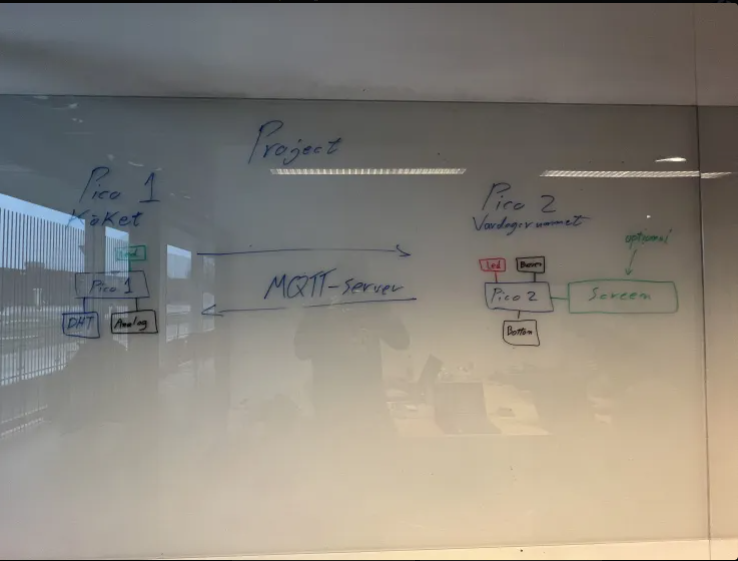 Project
Pico 1
Köket
Led
Pico 1
DHT
Analog
MQTT-Server
Pico 2
Vardagsrummet
optional
Led
Pico 2
Screen